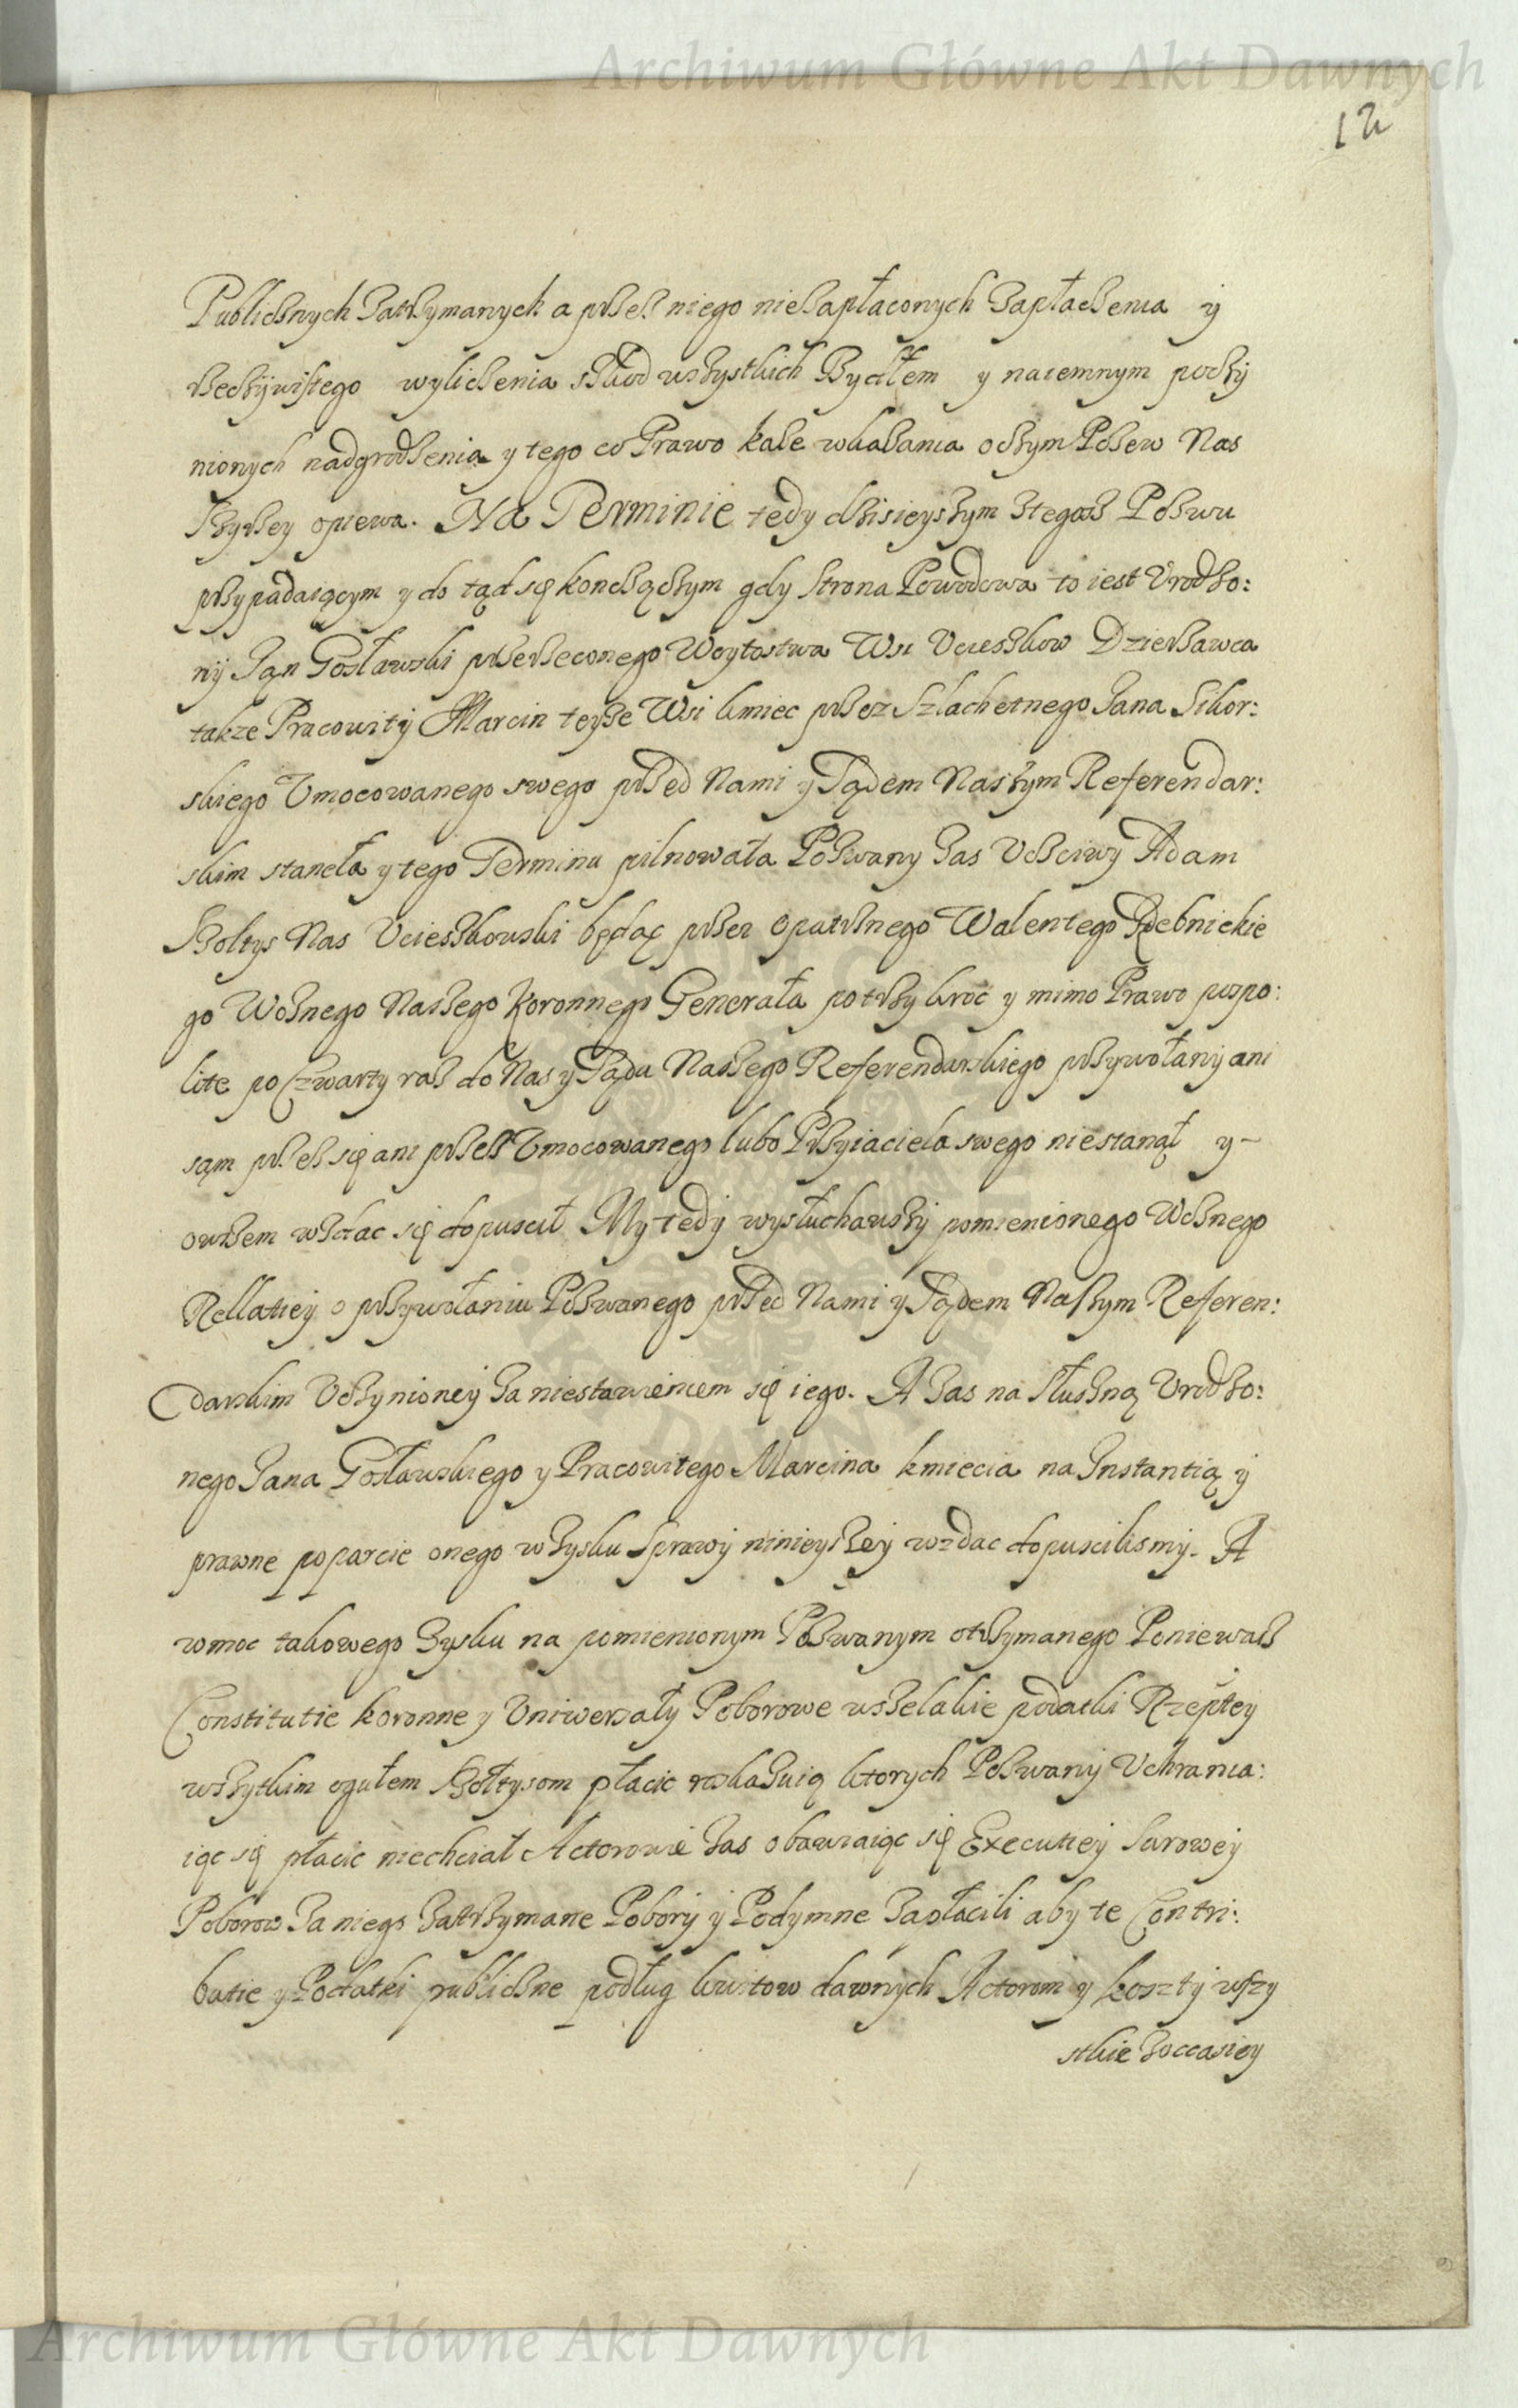 Archiwum Główne Akt Dawnych
12
Publicznych Zatrzymanych a przez niego niezapłaconych Zapłaczenia y
rzeczywistego wyliczenia szkod wszystkich Bydłem y naiemnym poczy
nionych nadgrodzenia y tego co Prawo każe wskazania o czym Pozew Nas
szyrzey opiewa. Na Terminie tedy dzisieyszym ztegosz Pozwu
przypadaiącym y do tąd się konczączym gdy Strona Powodowa to iest Vrodzo:
ny Jan Gosławski przerzeconego Woytostwa Wsi Vcieszkow Dzierzawca
takze Pracowity Marcin teyze Wsi kmiec przez Szlachetnego Jana Sikor:
skiego Vmocowanego swego przed Nami y Sądem Naszym Referendar:
skim staneła y tego Terminu pilnowała Pozwany Zas Vczciwy Adam
Szołtys Nas Vcieszkowski będąc przez Opatrznego Walentego Rebnickie
go Woznego Naszego Koronnego Generała po trzy kroc y mimo Prawo pospo:
lite po Czwarty raz do Nas y Sądu Naszego Referendarskiego przywołany ani
sąm przez się ani przez Vmocowanego lubo Przyiaciela swego niestanął y –
owszem wzdac się dopuscił My tedy wysłuchawszy pomienionego Woznego
Rellatiey o przywołaniu Pozwanego przed Nami y Sądem Naszym Referen:
darskim Vczynioney Za niestawieniem się iego. A Zas na słuszną Vrodzo:
nego Jana Gosławskiego y Pracowitego Marcina kmiecia na Instantią y
prawne poparcie onego w Zysku Sprawy ninieyszey wzdac dopuscilismy. A
w moc takowego Zysku na pomienionym Pozwanym otrzymanego Poniewasz
Constitutie koronne y Vniwersały Poborowe wszelakie podatki Rzeptey
wszytkim ogułem Szołtysom płacic roskazuią ktorych Pozwany Vchrania:
iąc się płacic niechciał Actorowie Zas obawiaiąc się Executiey Surowey
Poborow Za niego Zatrzymane Pobory y Podymne Zapłacili aby te Contri:
butie y Podatki publiczne podług kwitow dawnych Actorom y koszty wszy
stkie Zoccasiey
Archiwum Główne Akt Dawnych